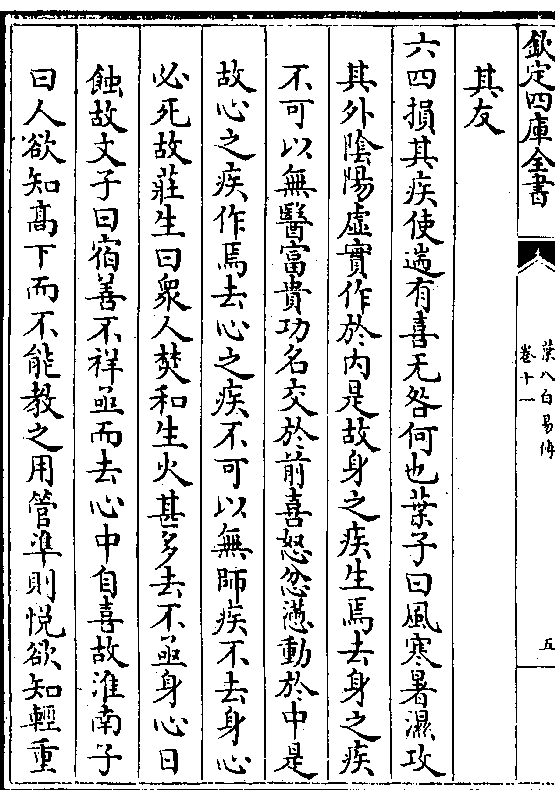 欽定四庫全書
葉八白易傳
卷十一
五
其友
六四損其疾使遄有喜无咎何也葉子曰風寒暑濕攻
其外陰陽虛實作於内是故身之疾生焉去身之疾
不可以無醫富貴功名交於前喜怒忿懣動於中是
故心之疾作焉去心之疾不可以無師疾不去身心
必死故莊生曰衆人焚和生火甚多去不亟身心日
蝕故文子曰宿善不祥亟而去心中自喜故淮南子
曰人欲知髙下而不能教之用管準則悦欲知輕重